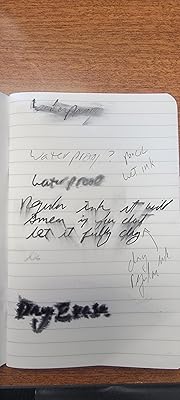 Waterproof
Waterproof? quick
wet ink
Waterproof
Regular ink it will
smear if you dont
let it fully dry
dry
Regular ink
Dry Erase